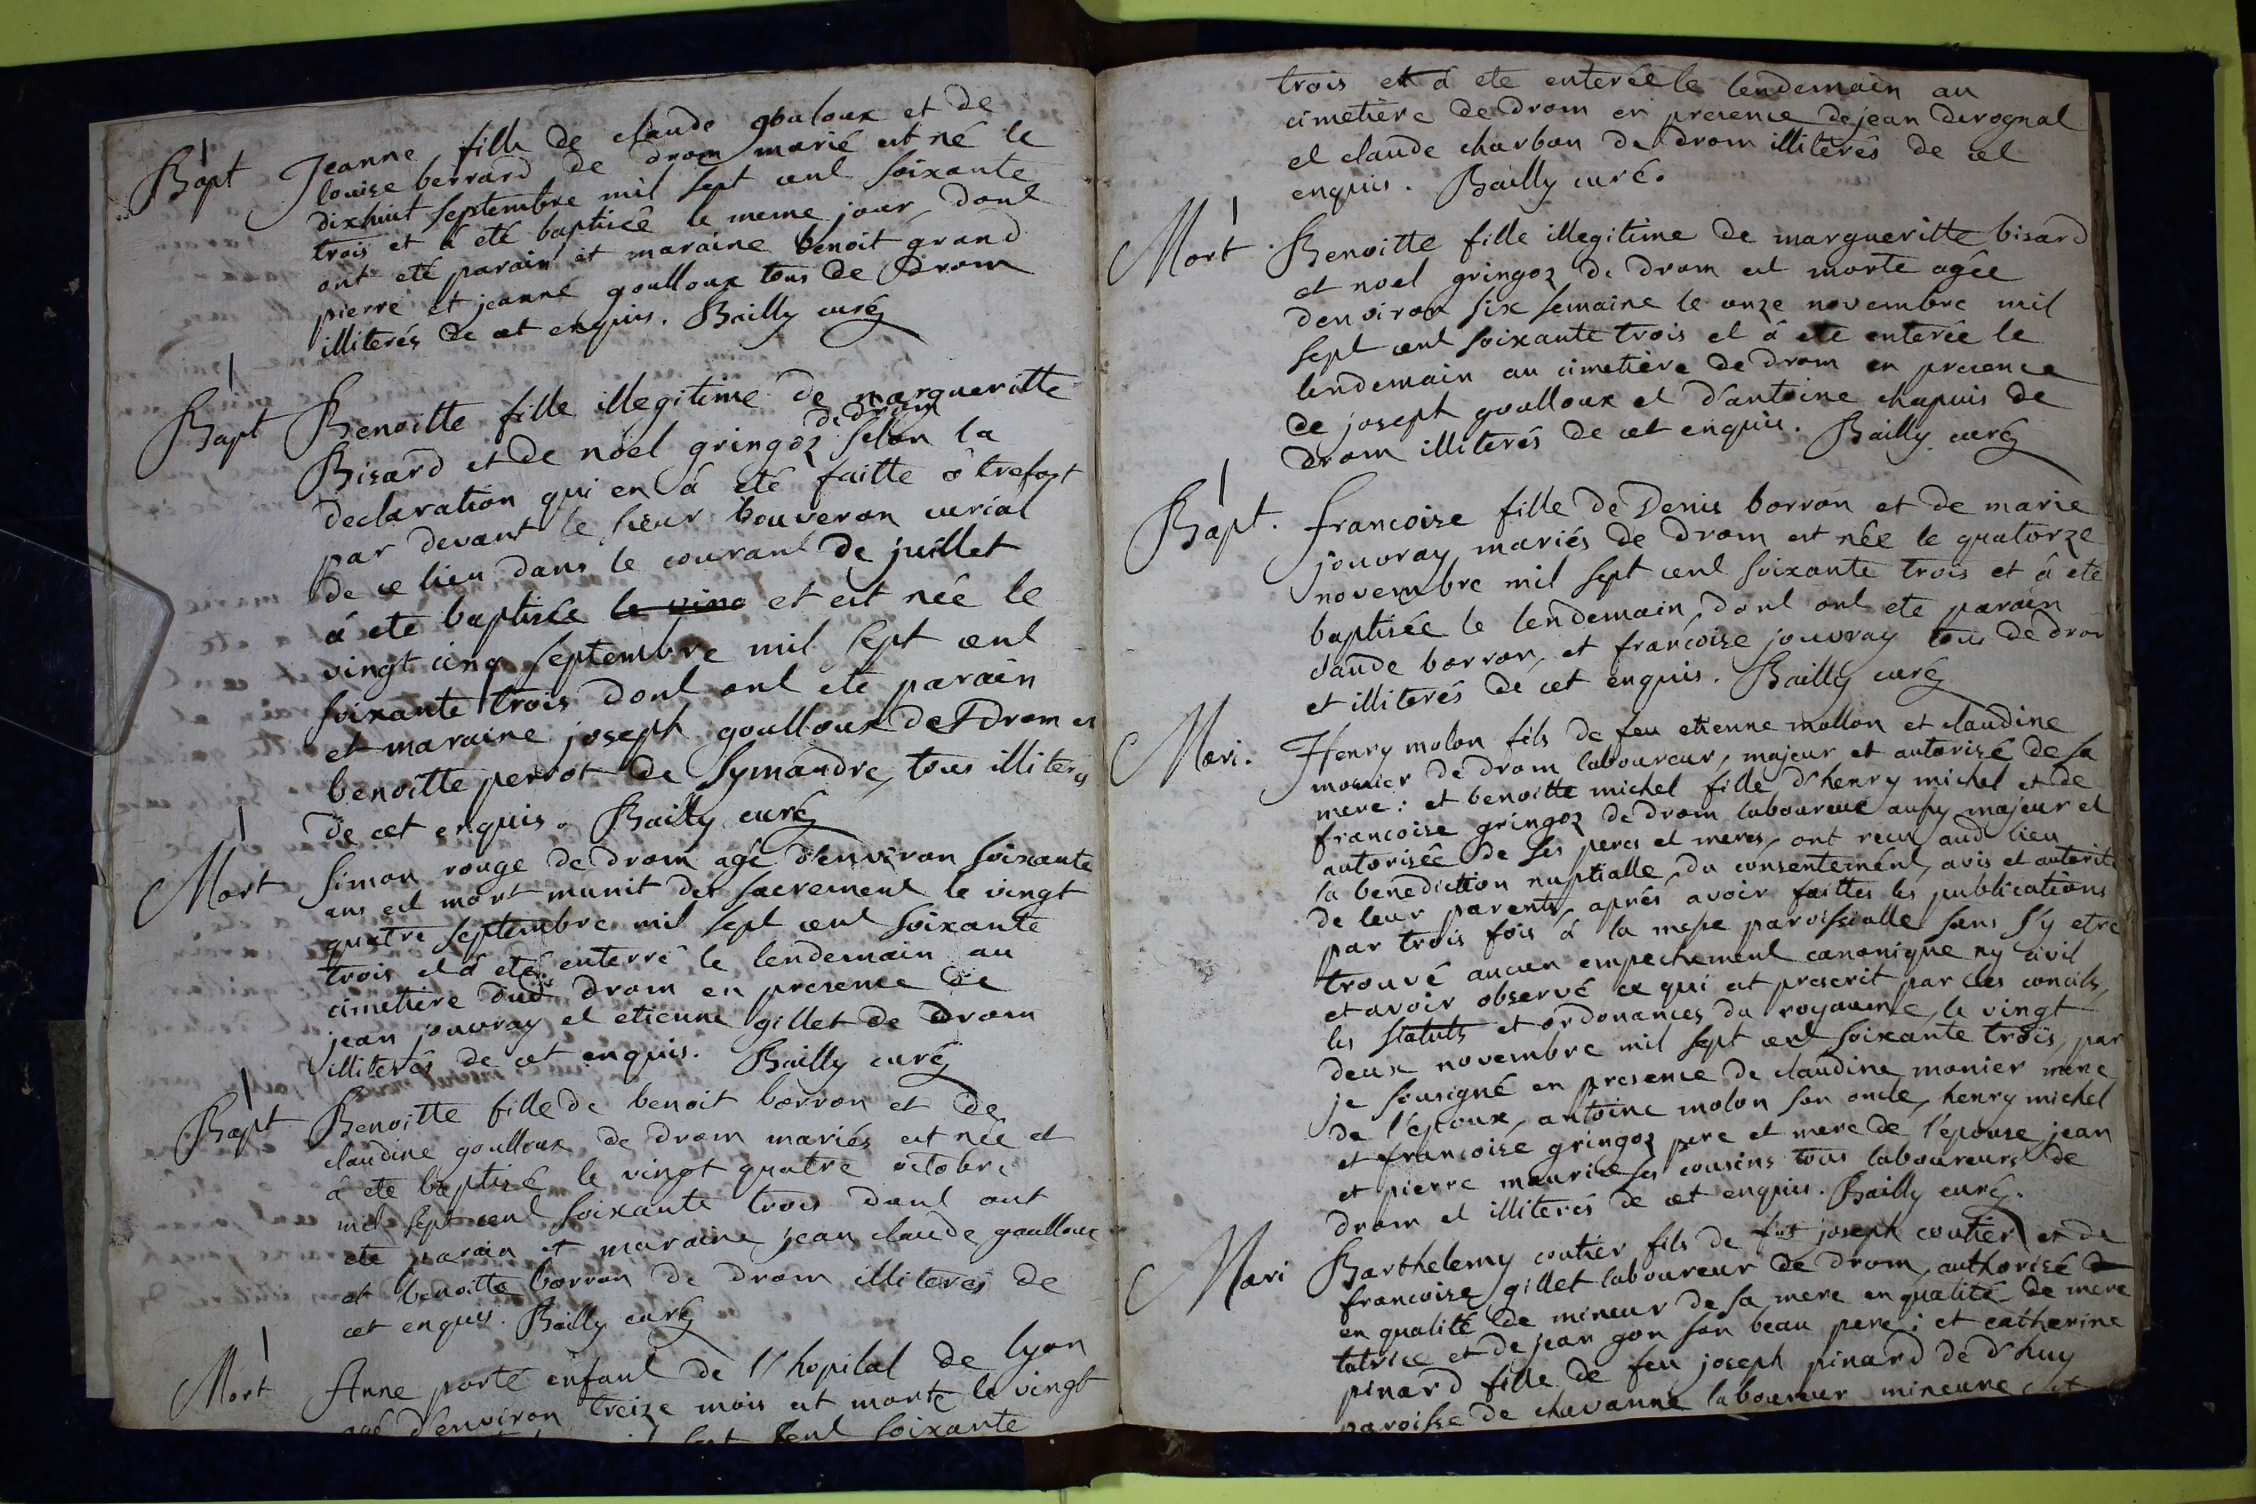 Bapt
Jeanne fille de claude gouloux et de
louise berrard de drom marié est né le
dixhuit septembre mil sept cent soixante
trois et á eté baptisée le meme jour, dont
ont eté parain et maraine benoit grand
pierre et jeanne goulloux tous de drom
illiterés de cet enquis. Bailly curé
Bapt
Benoitte fille illegitime de margueritte
de drom
Bisard et de noel gringoz selon la
declaration qui en á eté faitte á trefort
par devant le sieur bouveron curial
de ce lieu dans le courant de juillet
á ete baptisée le vinc et est née le
vingt cinq septembre mil sept cent
soixante trois dont ont ete parain
et maraine joseph goulloux de drom et
benoitte perrot de Symandre, tous illiterés
de cet enquis. Bailly curé
Mort
Simon rouge de drom agé d'environ soixante
ans est mort munit des sacrement le vingt
quatre septembre mil sept cent soixante
trois et á eté enterré le lendemain au
cimetiere dud drom en presence de
jean jouvray et etienne gillet de drom
illiterés de cet enquis. Bailly curé
Bapt
Benoitte fille de benoit borron et de
claudine goulloux de drom mariés est née et
á ete baptisé le vingt quatre octobre
mil sept cent soixante trois dont ont
ete parain et maraine jean claude goulloux
et benoitte borron de drom illiterés de
cet enquis. Bailly curé
Mort
Anne porté enfant de l'hopital de lyon
agé d'environ treize mois est morte le vingt
sept cent soixante
trois et á ete enterée le lendemain au
cimetiere de drom en presence de jean derognat
et claude charbon de drom illiterés de cet
enquis. Bailly curé.
Mort
Benoitte fille illegitime de margueritte bisard
et noel gringoz de drom est morte agée
denviron six semaine le onze novembre mil
sept cent soixante trois et á ete enterée le
lendemain au cimetiere de drom en presence
de joseph goulloux et d'antoine chapuis de
drom illiterés de cet enquis. Bailly curé
Bapt.
francoise fille de Denis borron et de marie
jouvray mariés de drom est née le quatorze
novembre mil sept cent soixante trois et á eté
baptisée le lendemain, dont ont ete parain
claude borron, et francoise jouvray tous de drom
et illiterés de cet enquis. Bailly curé
Mari.
Henry molon fils de feu etienne mollon et claudine
monier de drom laboureur, majeur et autorisé de sa
mere: et benoitte michel fille d'henry michel et de
francoise gringoz de drom laboureur aussy majeur et
autorisée de ses peres et meres, ont recu aud lieu
la benediction nuptialle, du consentement, avis et autorité
de leur parents, aprés avoir faittes les publications
par trois fois á la messe paroissialle sans s'y etre
trouvé aucun empechement canonique ny civil
et avoir observé ce qui est prescrit par les concils,
les statuts et ordonances du royaume, le vingt
deux novembre mil sept cent soixante trois, par
je sousigné en presence de claudine monier mere
de l'epoux, antoine molon son oncle, henry michel
et francoise gringoz pere et mere de l'epouse, jean
et pierre maurice ses cousins tous laboureurs de
drom et illiterés de cet enquis. Bailly curé.
Mari
Barthelemy coutier fils de fut joseph coutier et de
francoise gillet laboureur de drom, authorisé
en qualité de mineur de sa mere en qualité de mere
tutrice et de jean gon son beau pere: et catherine
pinard fille de feu joseph pinard de d'huy
paroisse de chavanne laboureur mineure